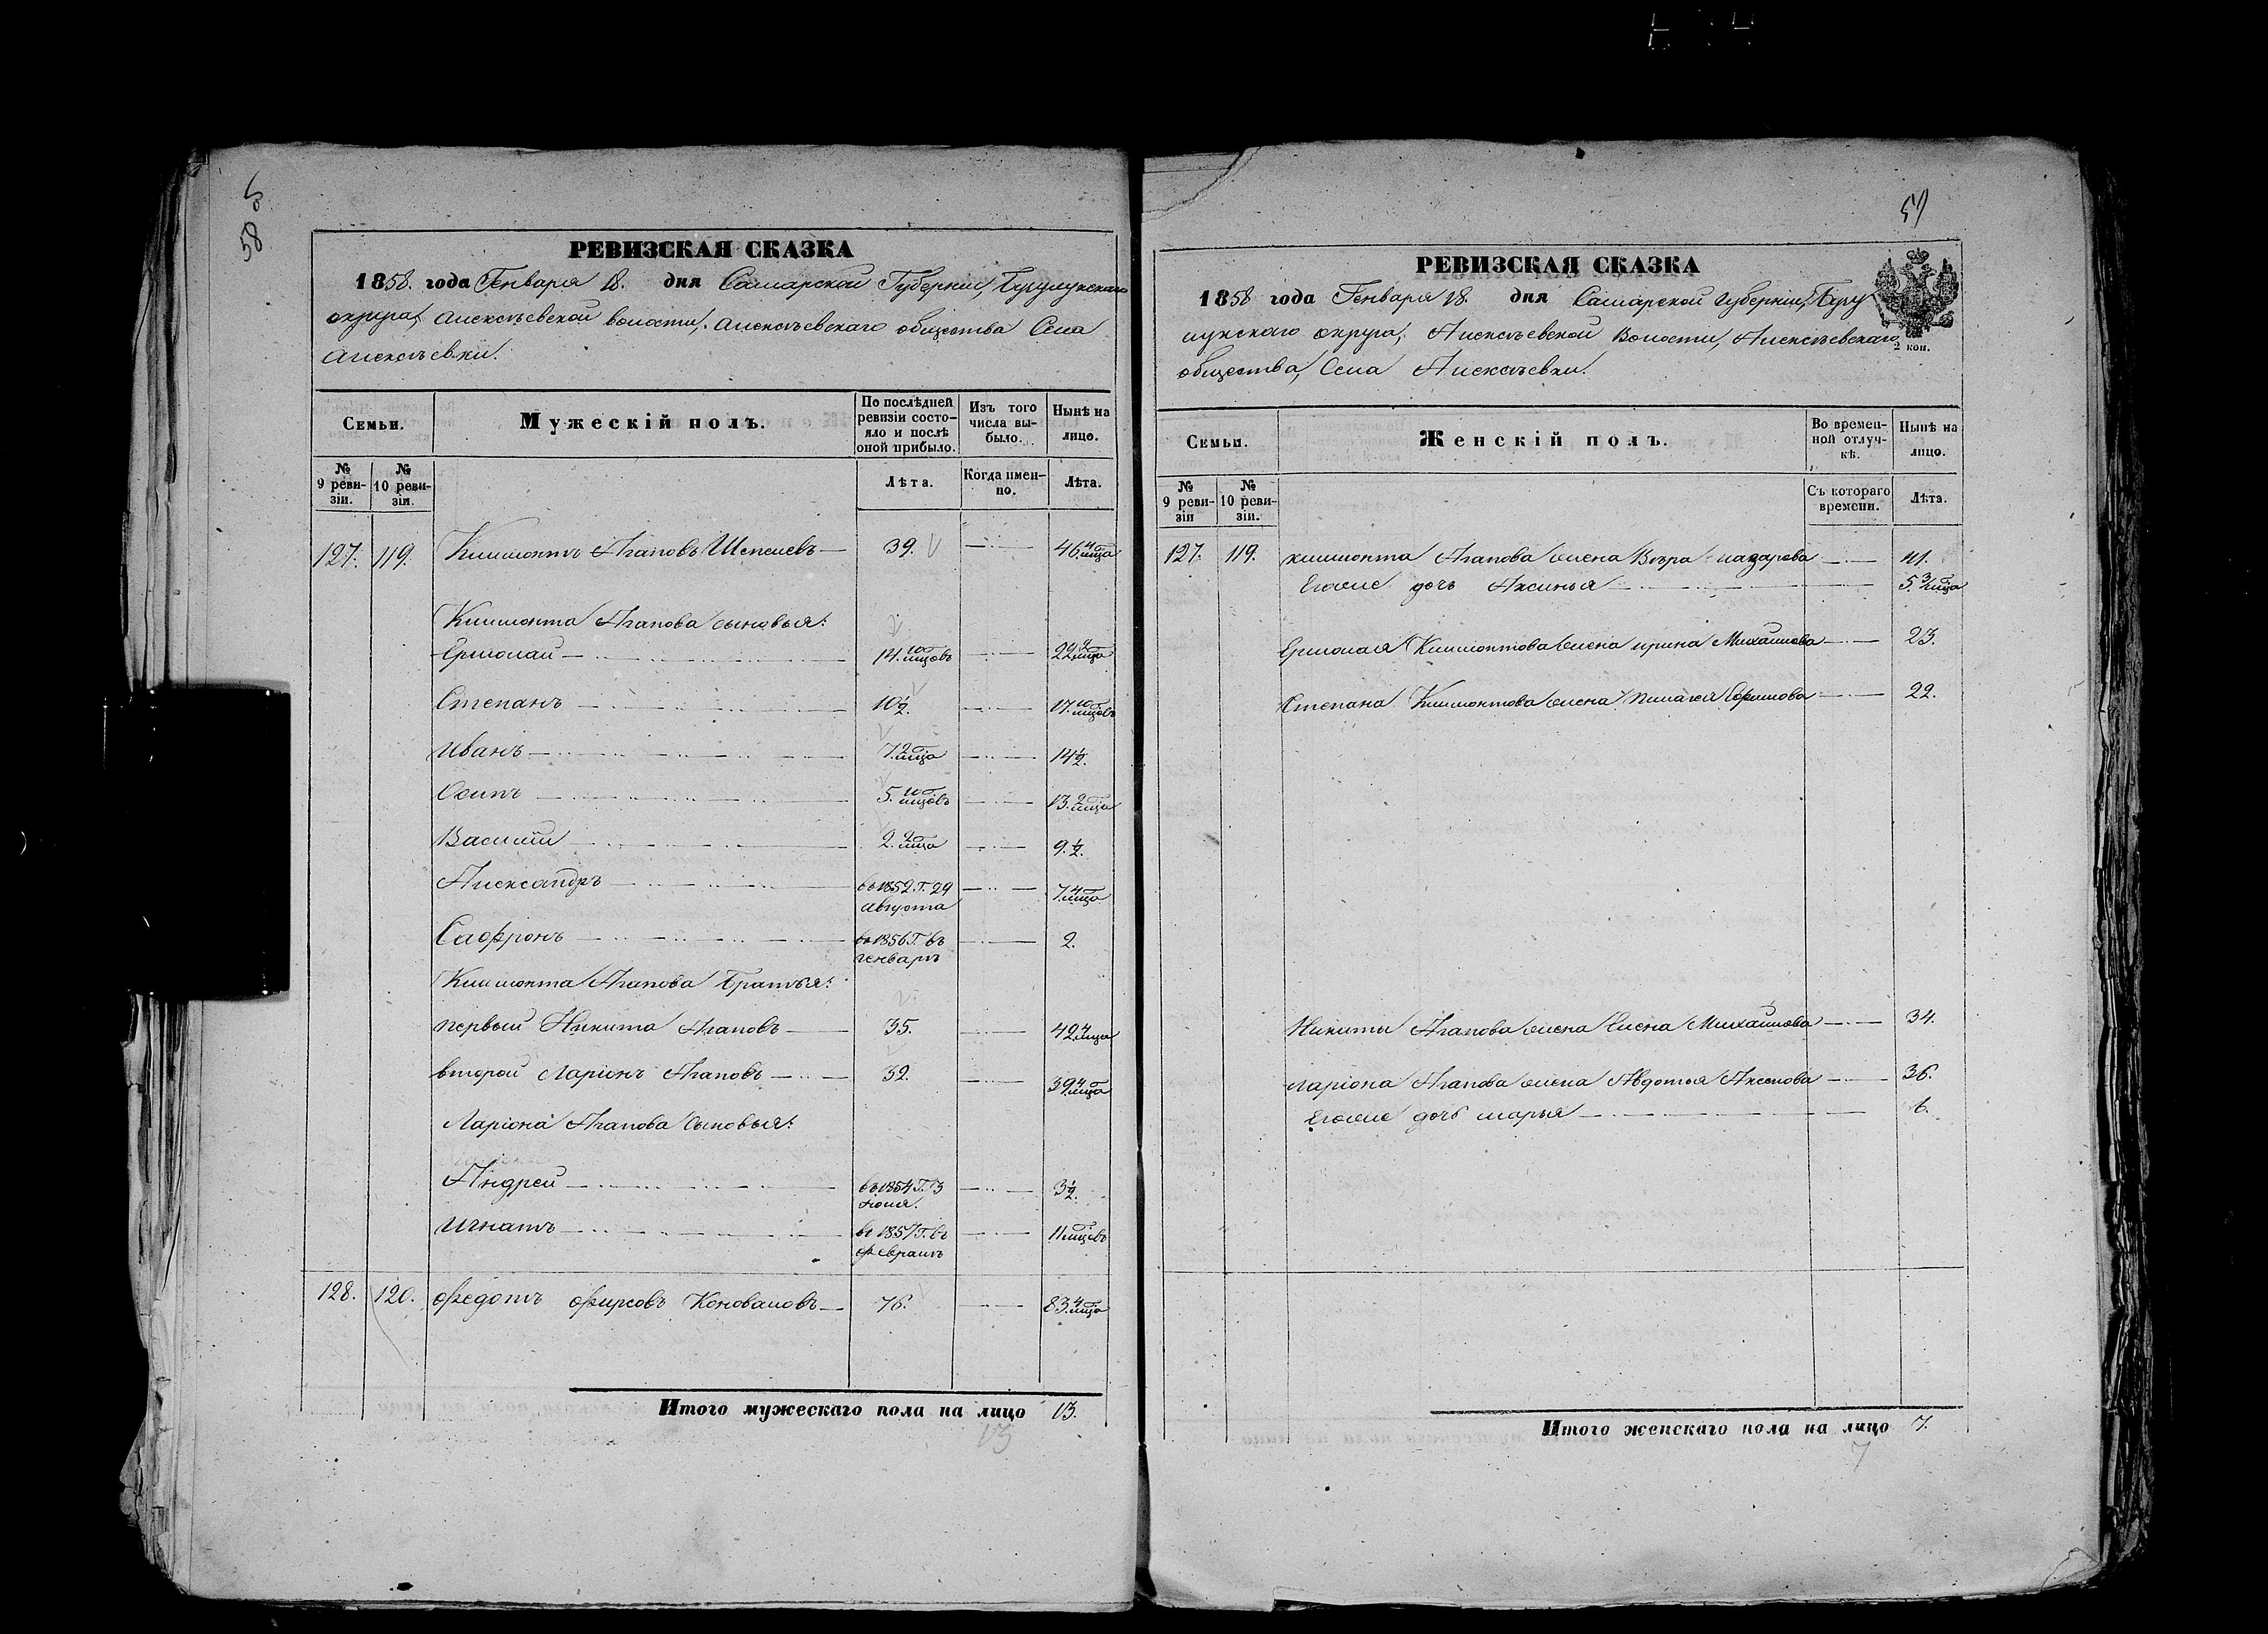 58
РЕВИЗСКАЯ СКАЗКА
1858. года Генваря 18. дня Самарской Губерніи, Бузулукскаго
округа, Алексѣевской волости, Алексѣевскаго общества Села
Алексѣевки.
Семьи.
Мужескій полъ.
По послѣдней ревизіи состояло и послѣ оной прибыло.
Изъ того числа выбыло.
Нынѣ на лицо.
№ 9 ревизіи.
№ 10 ревизіи.
Лѣта.
Когда именно.
Лѣта.
127. 119. Климонтъ Агаповъ 39. 46. 4 мца
Климонта Агапова сыновья:
Ермолай 14. 10 мцовъ 22. 4 мца
Степанъ 10 1/2. 17. 10 мцовъ
Иванъ 7. 2 мца 14 1/2.
Осипъ 5. 10 мцовъ 13. 2 мца
Василій 2. 2 мца 9. 1/2.
Александръ въ 1852. Г. 29 августа 7. 4 мца
Сафронъ въ 1856 Г. въ генварѣ 2.
Климонта Агапова Братья:
первый Никита Агаповъ 35. 42. 4 мца
второй Ларіонъ Агаповъ 32. 39. 4 мца
Ларіона Агапова сыновья:
Андрей въ 1854 Г. 3 іюня. 3 1/2.
Игнатъ въ 1857 Г. въ февралѣ 11 мцовъ
128. 120. Федотъ Фирсовъ Коноваловъ 76. 83. 4 мца
Итого мужескаго пола на лицо 13.
13
59
РЕВИЗСКАЯ СКАЗКА
1858 года Генваря 18. дня Самарской губерніи, Бузу
лукскаго округа, Алексѣевской Волости, Алексѣевскаго
2 коп.
общества, Села Алексѣевки.
Семьи.
Женскій полъ.
Во временной отлучкѣ.
Нынѣ на лицо.
№ 9 ревизіи
№ 10 ревизіи.
Съ котораго времени.
Лѣта.
127. 119. Климонта Агапова жена Вѣра Лазарева 41.
Егоже дочь Аксинья 5. 3 мца
Ермолая Климонтова жена Ирина Михайлова 23.
Степана Климонтова жена Пилагея Ефимова 22.
Никиты Агапова жена Елена Михайлова 34.
Ларіона Агапова жена Авдотья Аксенова 36.
Егоже дочь Марья 6.
Итого женскаго пола на лицо 7.
7